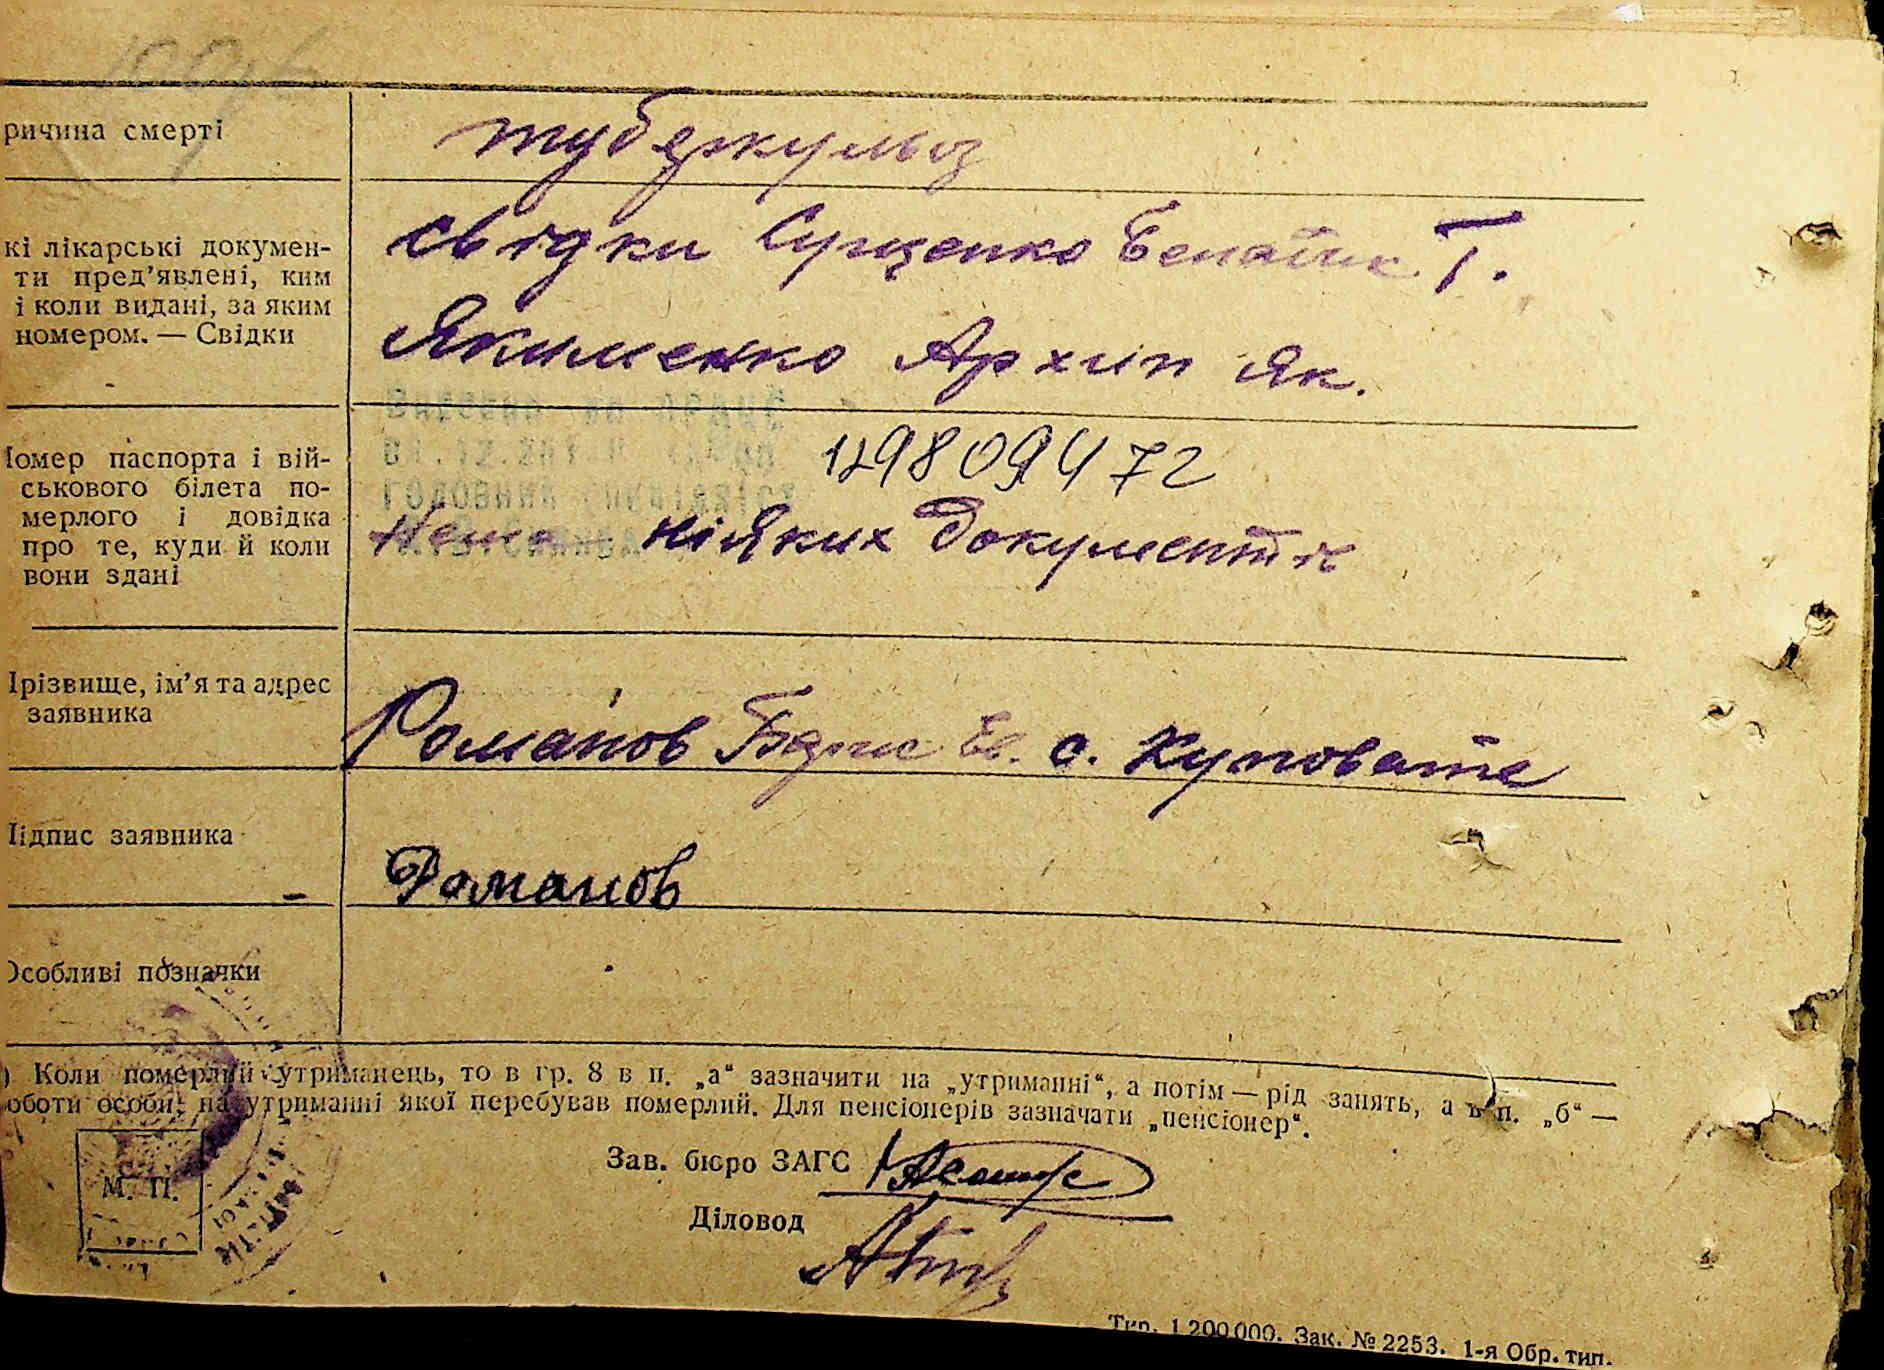 ричина смерті
туберкульоз
кі лікарські докумен-
ти пред’явлені, ким
і коли видані, за яким
номером. — Свідки
свідки Сущенко Г.
Якименко Архип Як.
Внесено до ДРАЦС
Номер паспорта і вій-
ськового білета по-
мерлого і довідка
про те, куди й коли
вони здані
1298094 72
Нема ніяких документів
Прізвище, ім’я та адрес
заявника
Романов Борис с. Куповате
Підпис заявника
Романов
Особливі позначки
) Коли померлий утриманець, то в гр. 8 в п. „а“ зазначити на „утриманні“, а потім — рід занять, а в п. „б“ —
оботи особи, на утриманні якої перебував померлий. Для пенсіонерів зазначати „пенсіонер“.
Зав. бюро ЗАГС
М. П.
Діловод
Тир. 1.200.000. Зак. № 2253. 1-я Обр. тип.